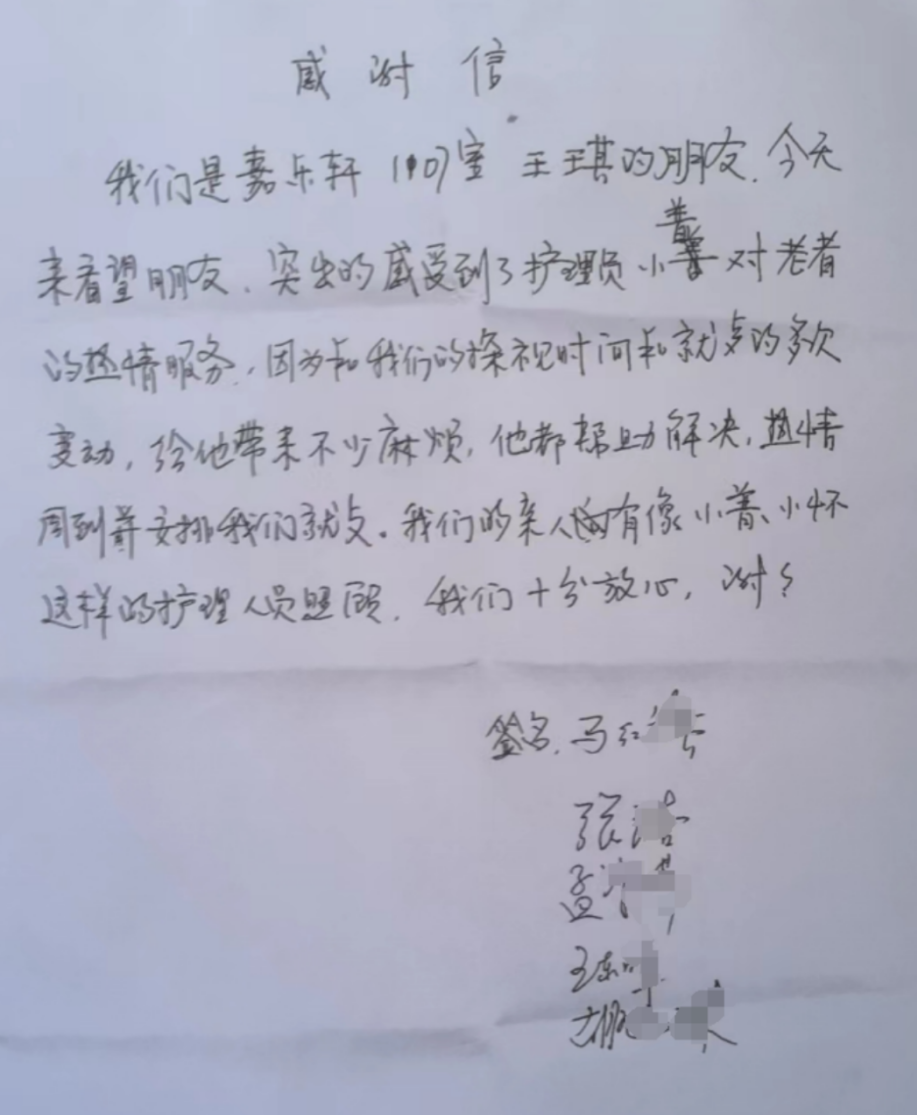 感谢信
我们是嘉乐轩1107室王琪的朋友.今天
来看望朋友.突出的感受到了护理员小普对老者
的热情服务.因为和我们的探视时间和就步的多次
变动,给他带来不少麻烦,他都帮助解决,热情
周到并安排我们就.我们的亲人有像小普、小怀
这样的护理人员照顾.我们十分放心,谢
签名.马红
张
孟
王东
胡